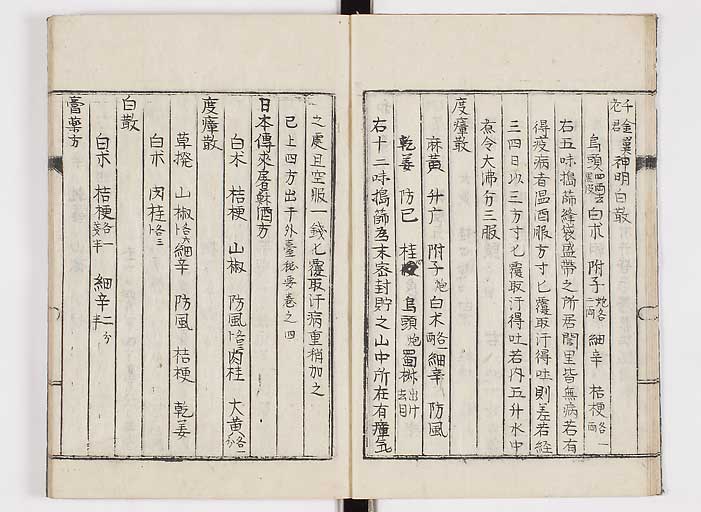 千金翼神明白散
老君
烏頭 白朮 附子炮各二両 細辛 桔梗各一両
右五味搗篩縫袋盛帶之所居閭里皆無病若有
得疫病者温酒服方寸匕覆取汗得吐則差若經
三四日以三方寸匕覆取汗得吐若内五升水中
煮令大沸分三服
度瘴散
麻黃 升广 附子炮 白朮各一両 細辛 防風
乾姜 防已 桂 烏頭炮 蜀椒出汁去目
右十二味搗篩為末密封貯之山中所在有瘴気
之處旦空服一錢匕覆取汗病重稍加之
已上四方出于外臺秘要卷之四
日本傳來屠蘇酒方
白朮 桔梗 山椒 防風各三 肉桂 大黃各一分
度瘴散
草撥 山椒各六 細辛 防風 桔梗 乾姜
白朮 肉桂各三
白散
白朮 桔梗各一 細辛二分
膏藥方